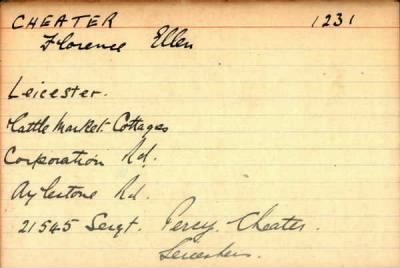 CHEATER 1231
Florence Ellen
Leicester.
Cattle Market Cottages
Corporation Rd.
Aylestone Rd.
21545 Sergt. Percy Cheater.
Leicesters.